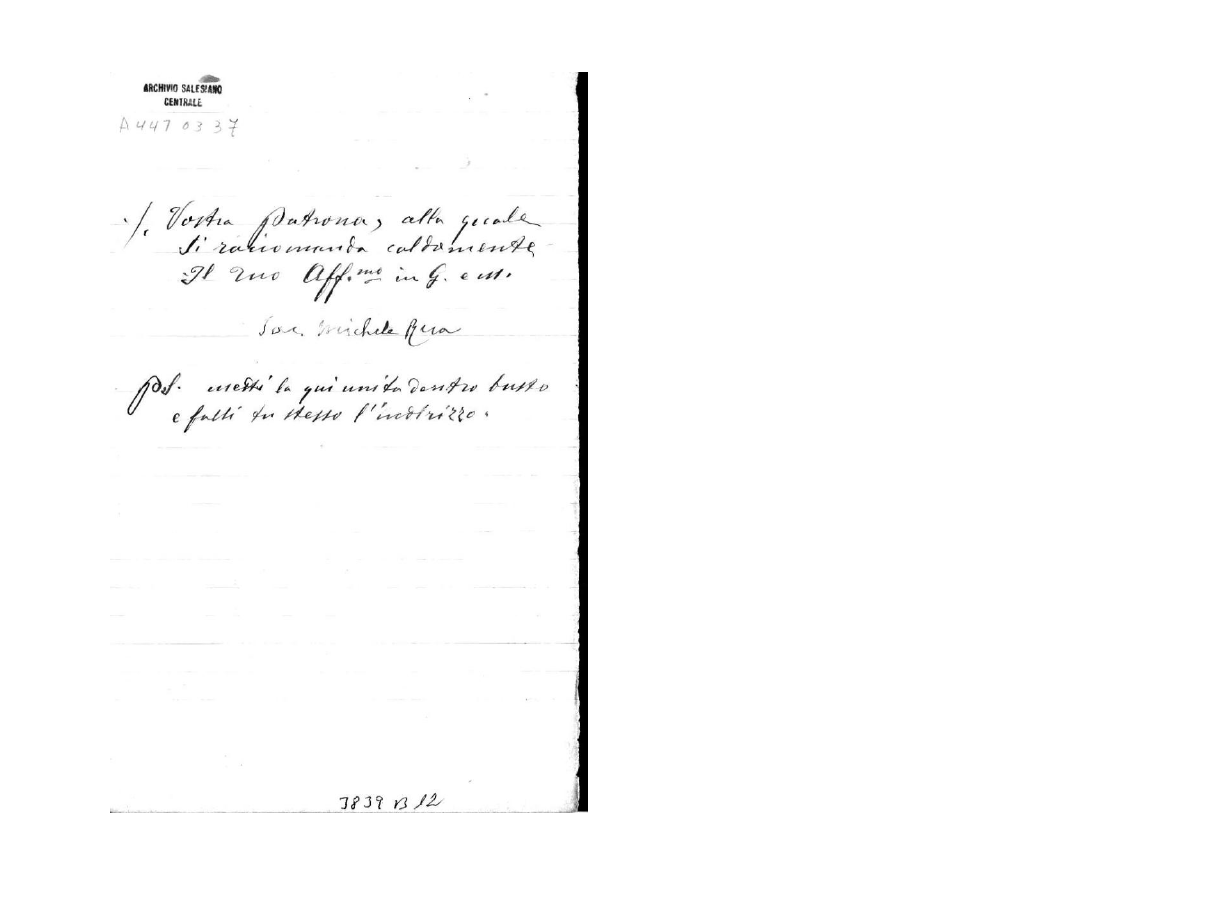 ARCHIVIO SALESIANO
CENTRALE
A4470337
./. Vostra Patrona, alla quale
si raccomanda caldamente
Il tuo Aff.mo in G. e M.
Sac. Michele Rua
PS. metti la qui unita dentro busta
e falli tu stesso l'indirizzo.
3839 B 12